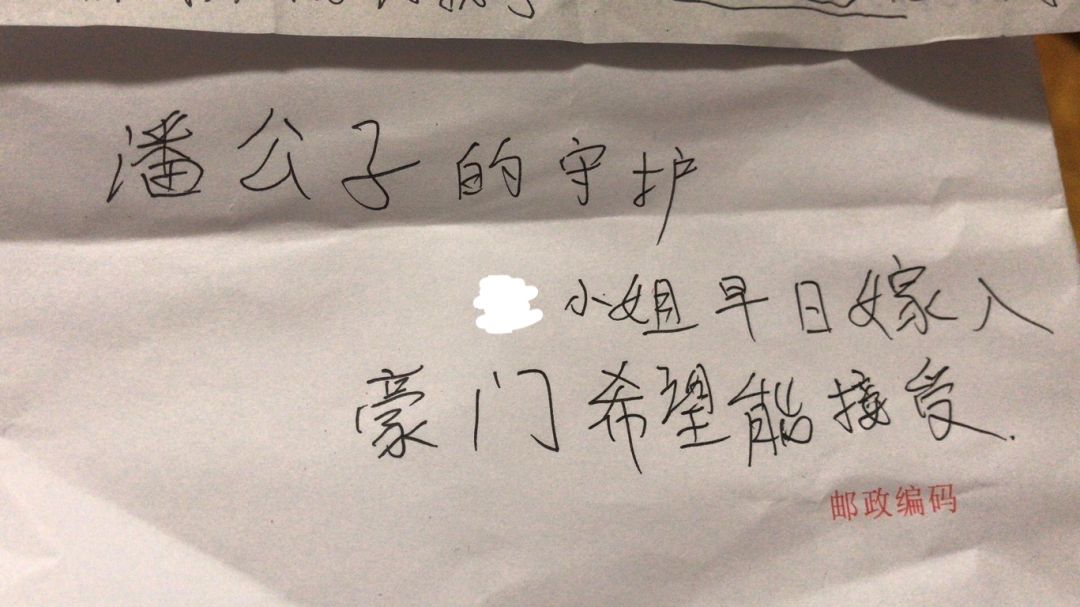 潘公子的守护
小姐早日嫁入
豪门希望能接受.
邮政编码